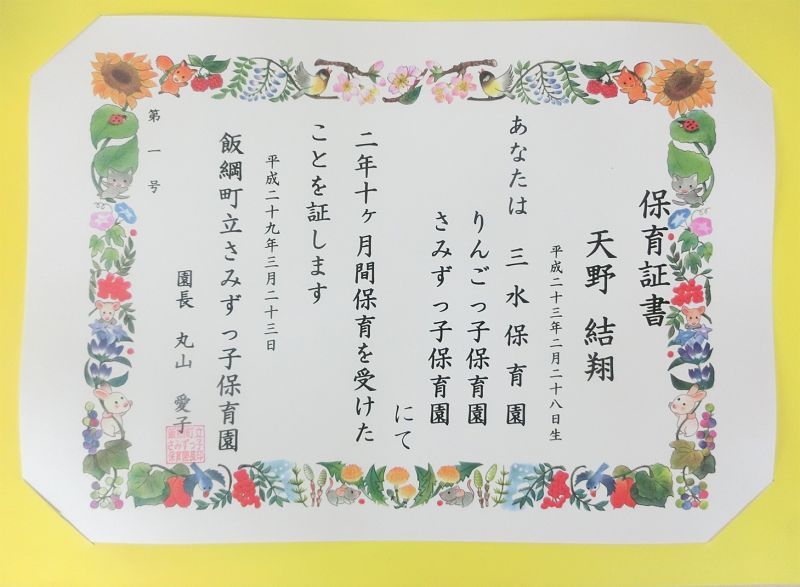 保育証書
天野 結翔
平成二十三年二月二十八日生
あなたは 三水保育園
りんごっ子保育園
さみずっ子保育園
にて
二年十ヶ月間保育を受けた
ことを証します
平成二十九年三月二十三日
飯綱町立さみずっ子保育園
園長 丸山 愛子
第一号